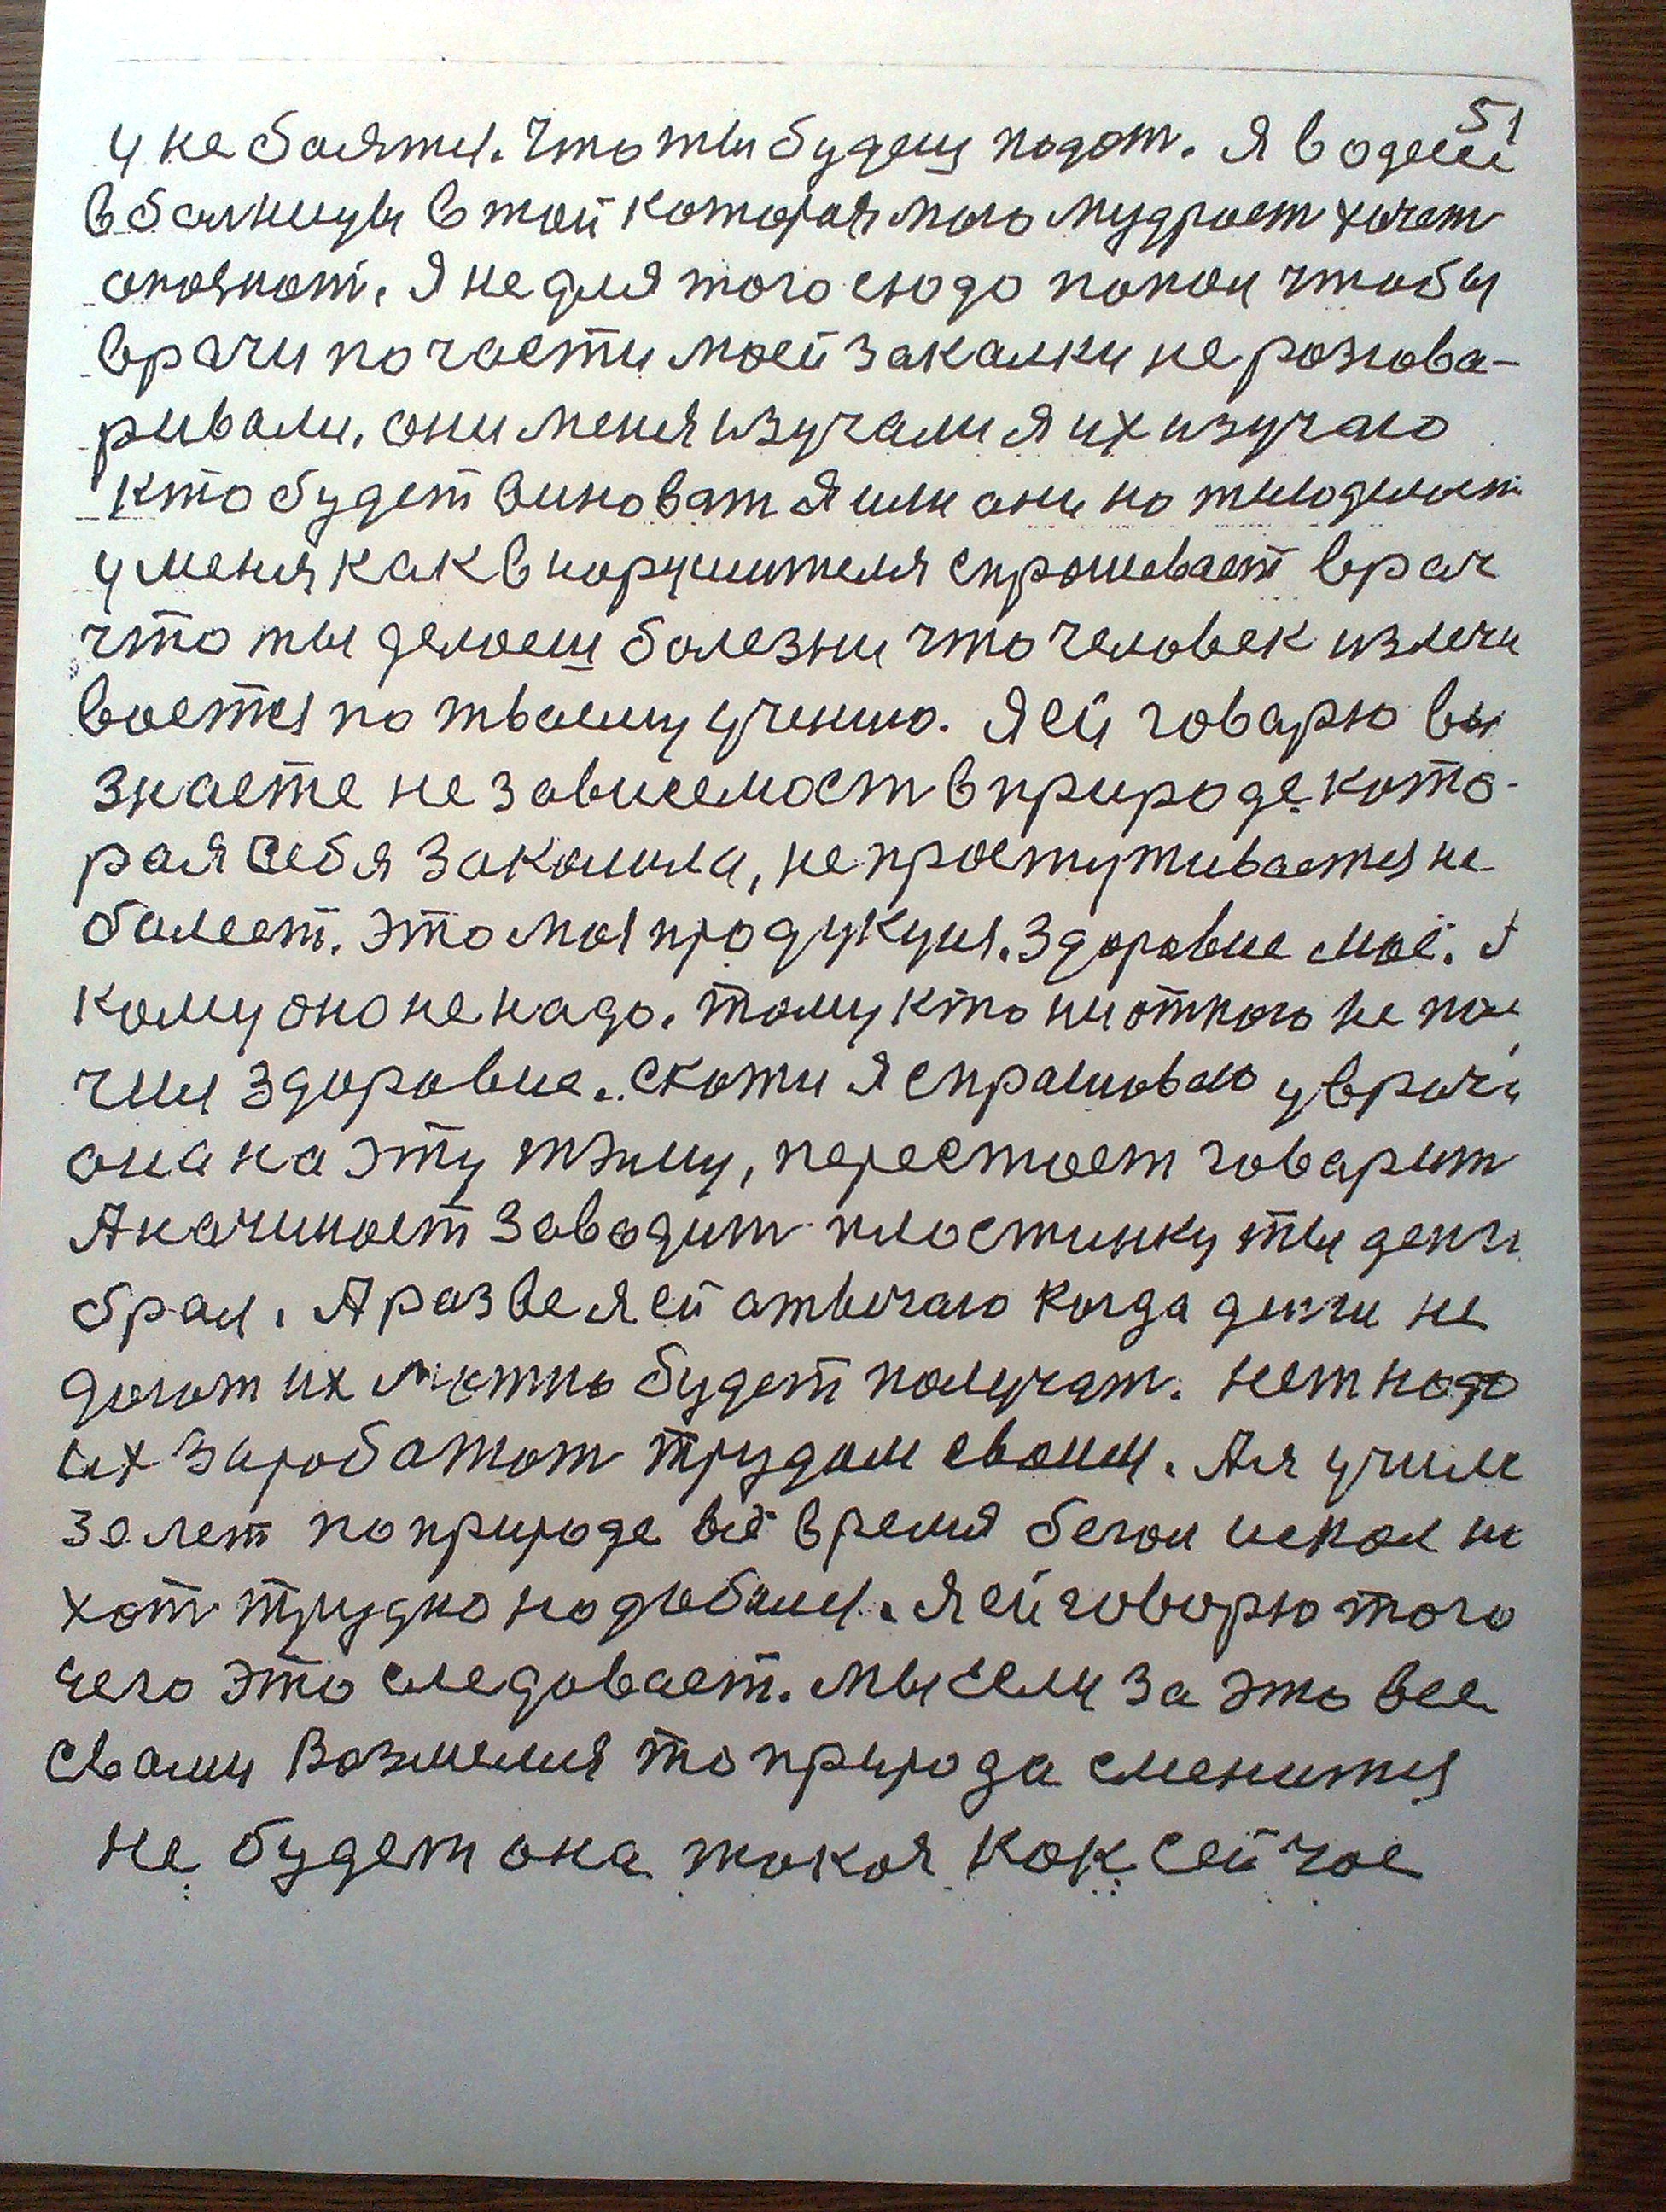 51
и не боятся. Что ты будеш подат. Я в одели
в болницы в той которая мою мудрост хочет
опознат. Я не для того сюдо попал чтобы
врачи по части моей закалки не розгова-
ривали. они меня изучали я их изучаю
кто будет виноват я или они но
у меня как в норушителя спрошевает врач
что ты делоеш болезни что человек излечи
воется по твоему учению. Я ей говарю вы
знаете не зовисемост в природе кото-
рая себя заколила, не простуживается не
болеет. Это моя продукция. Здоровие моё.
кому оно не надо. тому кто ни откого не
чил здоровие. скоти я спрашоваю у врача
она на эту тэму, перестоет говарит
А начиноет зоводит плостинку ты денги
брал. А разве я ей отвечаю когда денги не
догот их никто будет получат. нет надо
их заработот трудом своим. А я учил
30 лет по природе всё время бегол искол их
хот трудно но добился. Я ей говорю того
чего это следовает. мы если за это все
с вами возмемся то природа сменится
не будет она токоя как сейчас